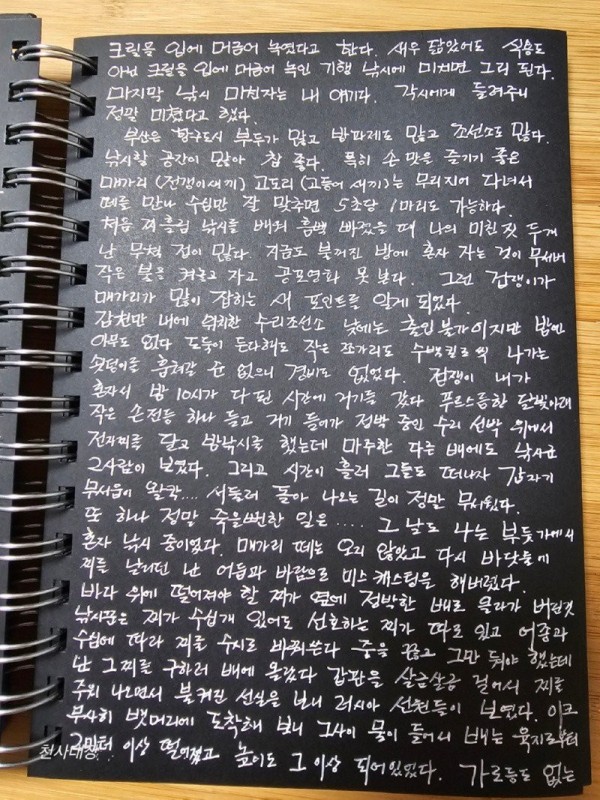 크릴을 입에 머금어 녹였다고 한다. 새우 닮았어도 식용도
아닌 크릴을 입에 머금어 녹인 기행 낚시에 미치면 그리 된다.
마지막 낚시 미친자는 내 얘기다. 각시에게 들려주니
정말 미쳤다고 했다.
부산은 항구도시 부두가 많고 방파제도 많고 조선소도 많다.
낚시할 공간이 많아 참 좋다. 특히 손 맛을 즐기기 좋은
매가리(전갱이새끼) 고도리(고등어 새끼)는 무리지어 다녀서
떼를 만나 수심만 잘 맞추면 5초당 1마리도 가능하다.
처음 찌흘림 낚시를 배워 흠뻑 빠졌을 때 나의 미친 짓 두개
난 무척 겁이 많다. 지금도 불꺼진 방에 혼자 자는 것이 무서버
작은 불을 켜놓고 자고 공포영화 못 본다. 그런 겁쟁이가
매가리가 많이 잡히는 새 포인트를 알게 되었다.
감천만 내에 위치한 수리조선소 낮에는 출입 불가이지만 밤엔
아무도 없다 도둑이 든다해도 작은 쪼가리도 수백킬로씩 나가는
쇳덩이를 훔쳐갈 순 없으니 경비도 없었다. 겁쟁이 내가
혼자서 밤 10시가 다 된 시간에 거기를 갔다 푸르스름한 달빛아래
작은 손전등 하나 들고 거기 들어가 정박 중인 수리 선박 위에서
전자찌를 달고 밤낚시를 했는데 마주한 다른 배에도 낚시꾼
2사람이 보였다. 그리고 시간이 흘러 그들도 떠나자 갑자기
무서움이 왈칵.... 서둘러 돌아 나오는 길이 정말 무서웠다.
또 하나 정말 죽을뻔한 일은 ..... 그 날도 나는 부둣가에서
혼자 낚시 중이었다. 매가리 떼는 오지 않았고 다시 바닷물에
찌를 날리던 난 어둠과 바람으로 미스 캐스팅을 해버렸다.
바다 위에 떨어져야 할 찌가 옆에 정박한 배로 올라가 버린것
낚시꾼은 찌가 수십개 있어도 선호하는 찌가 따로 있고 어종과
수심에 따라 찌를 수시로 바꿔쓴다 줄을 끊고 그만 둬야 했는데
난 그 찌를 구하러 배에 올랐다 갑판을 살금살금 걸어서 찌를
주워 나오면서 불켜진 선실을 보니 러시아 선원들이 보였다. 이크
무사히 뱃머리에 도착해 보니 그사이 물이 들어서 배는 육지로부터
2미터 이상 떨어졌고 높이도 그 이상 되어있었다. 가로등도 없는